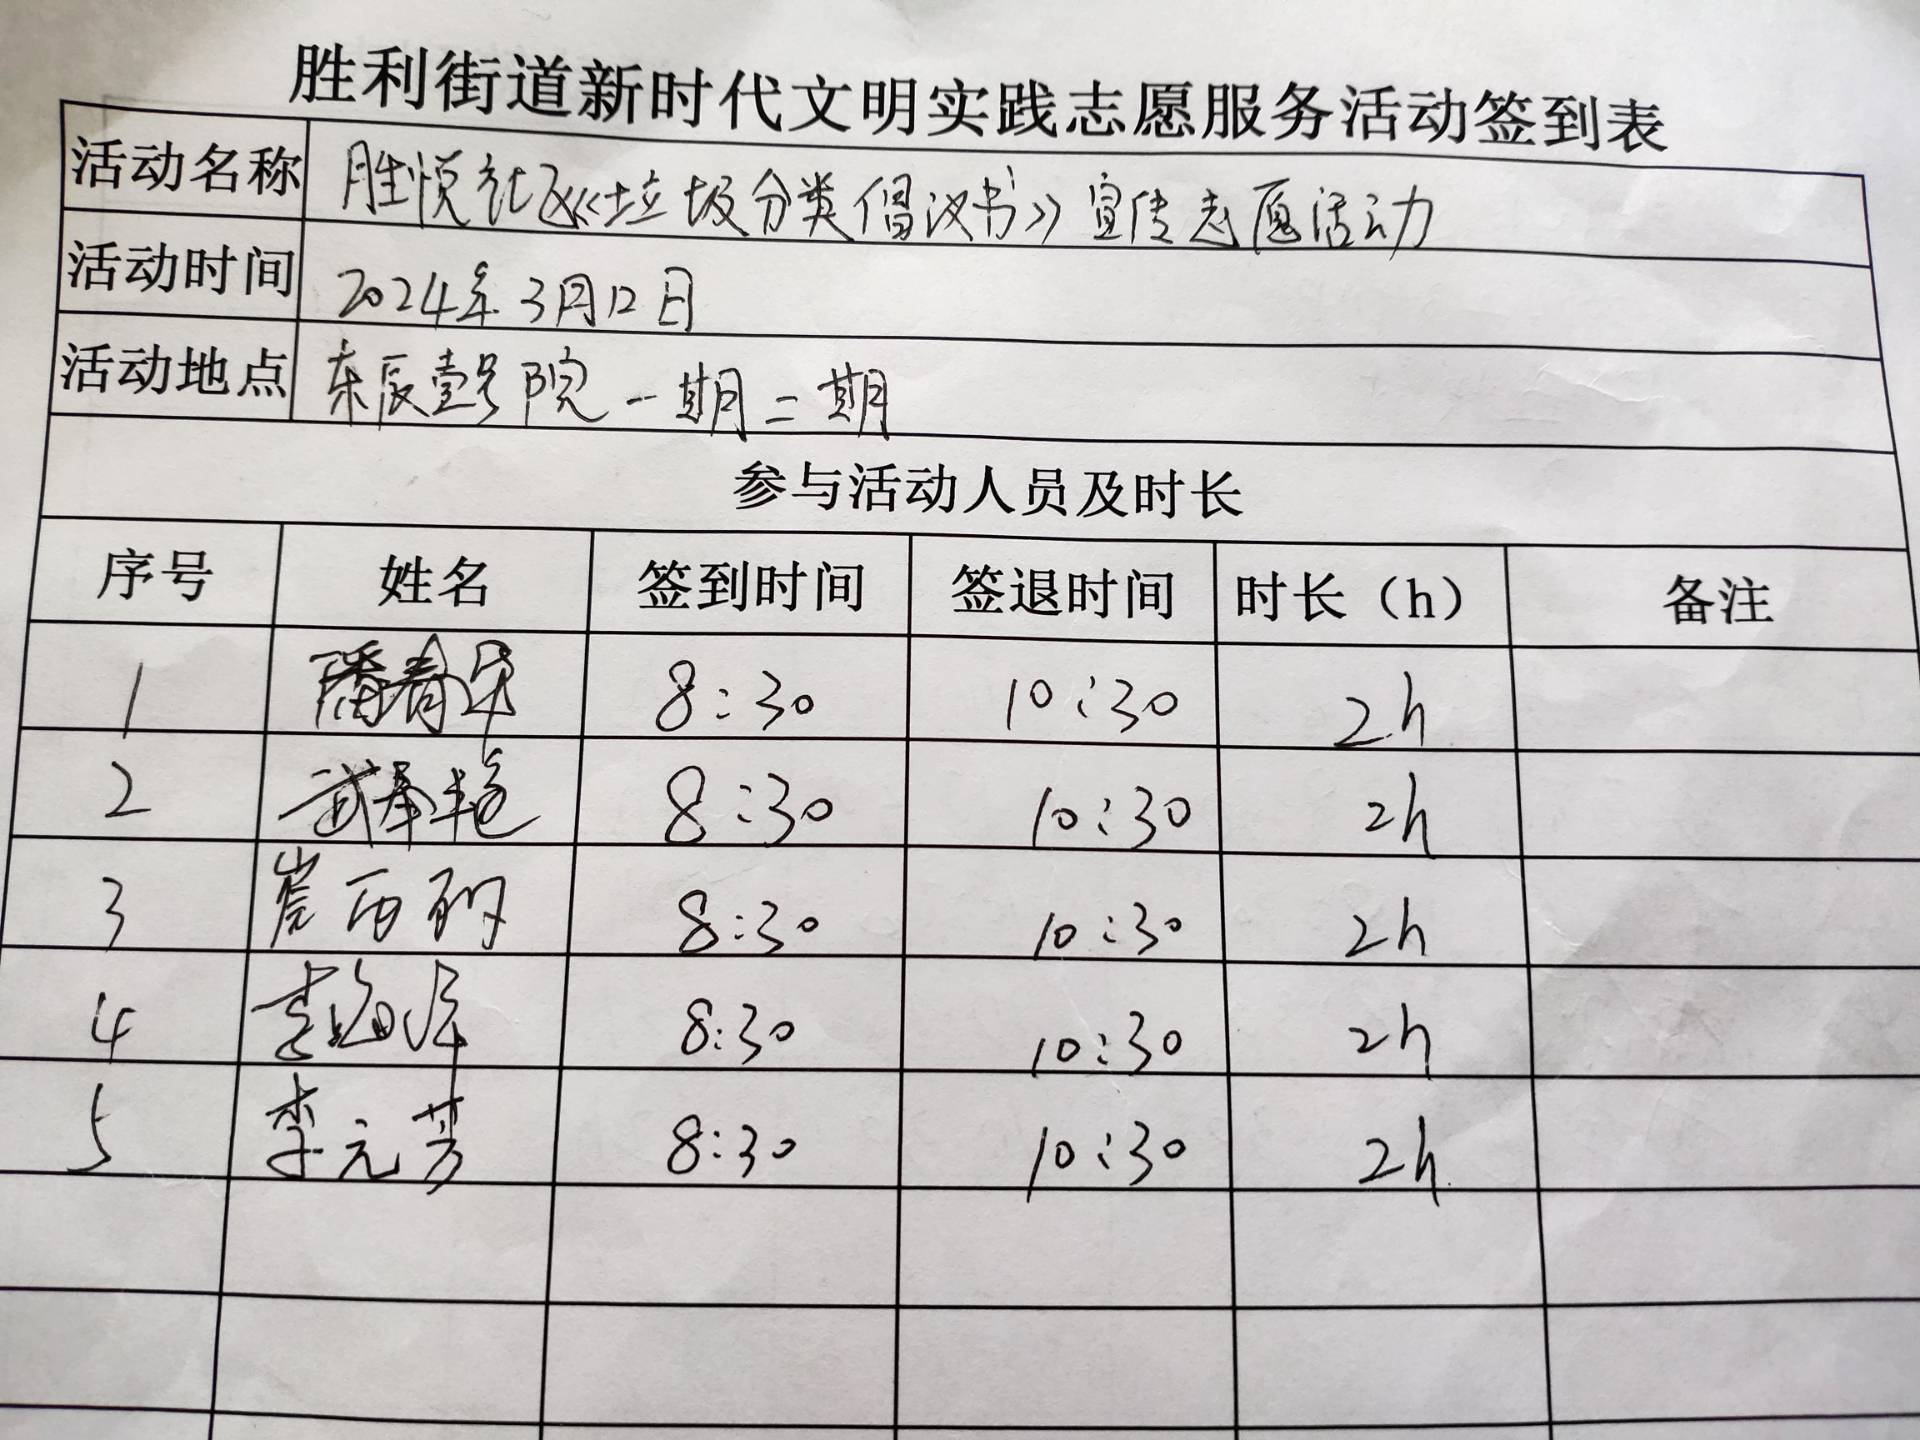 胜利街道新时代文明实践志愿服务活动签到表
活动名称 胜悦社区《垃圾分类倡议书》宣传志愿活动
活动时间 2024年3月12日
活动地点 东辰壹号院一期二期
参与活动人员及时长
序号 姓名 签到时间 签退时间 时长（h） 备注
1 8:30 10:30 2h
2 8:30 10:30 2h
3 8:30 10:30 2h
4 8:30 10:30 2h
5 李元芳 8:30 10:30 2h